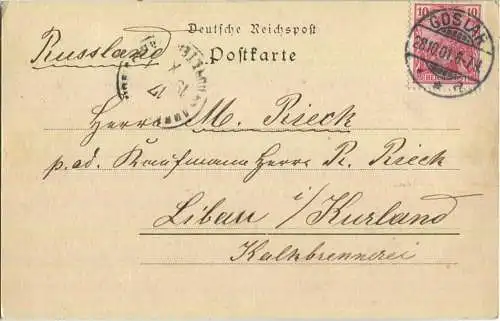 Deutsche Reichspost
Russland
Postkarte
10 10
GOSLAR
28.10.01. 6-7 N.
Herrn M. Rieck
p. ad. Kaufmann Herrn R. Rieck
Libau i/Kurland
Kalkbrennerei